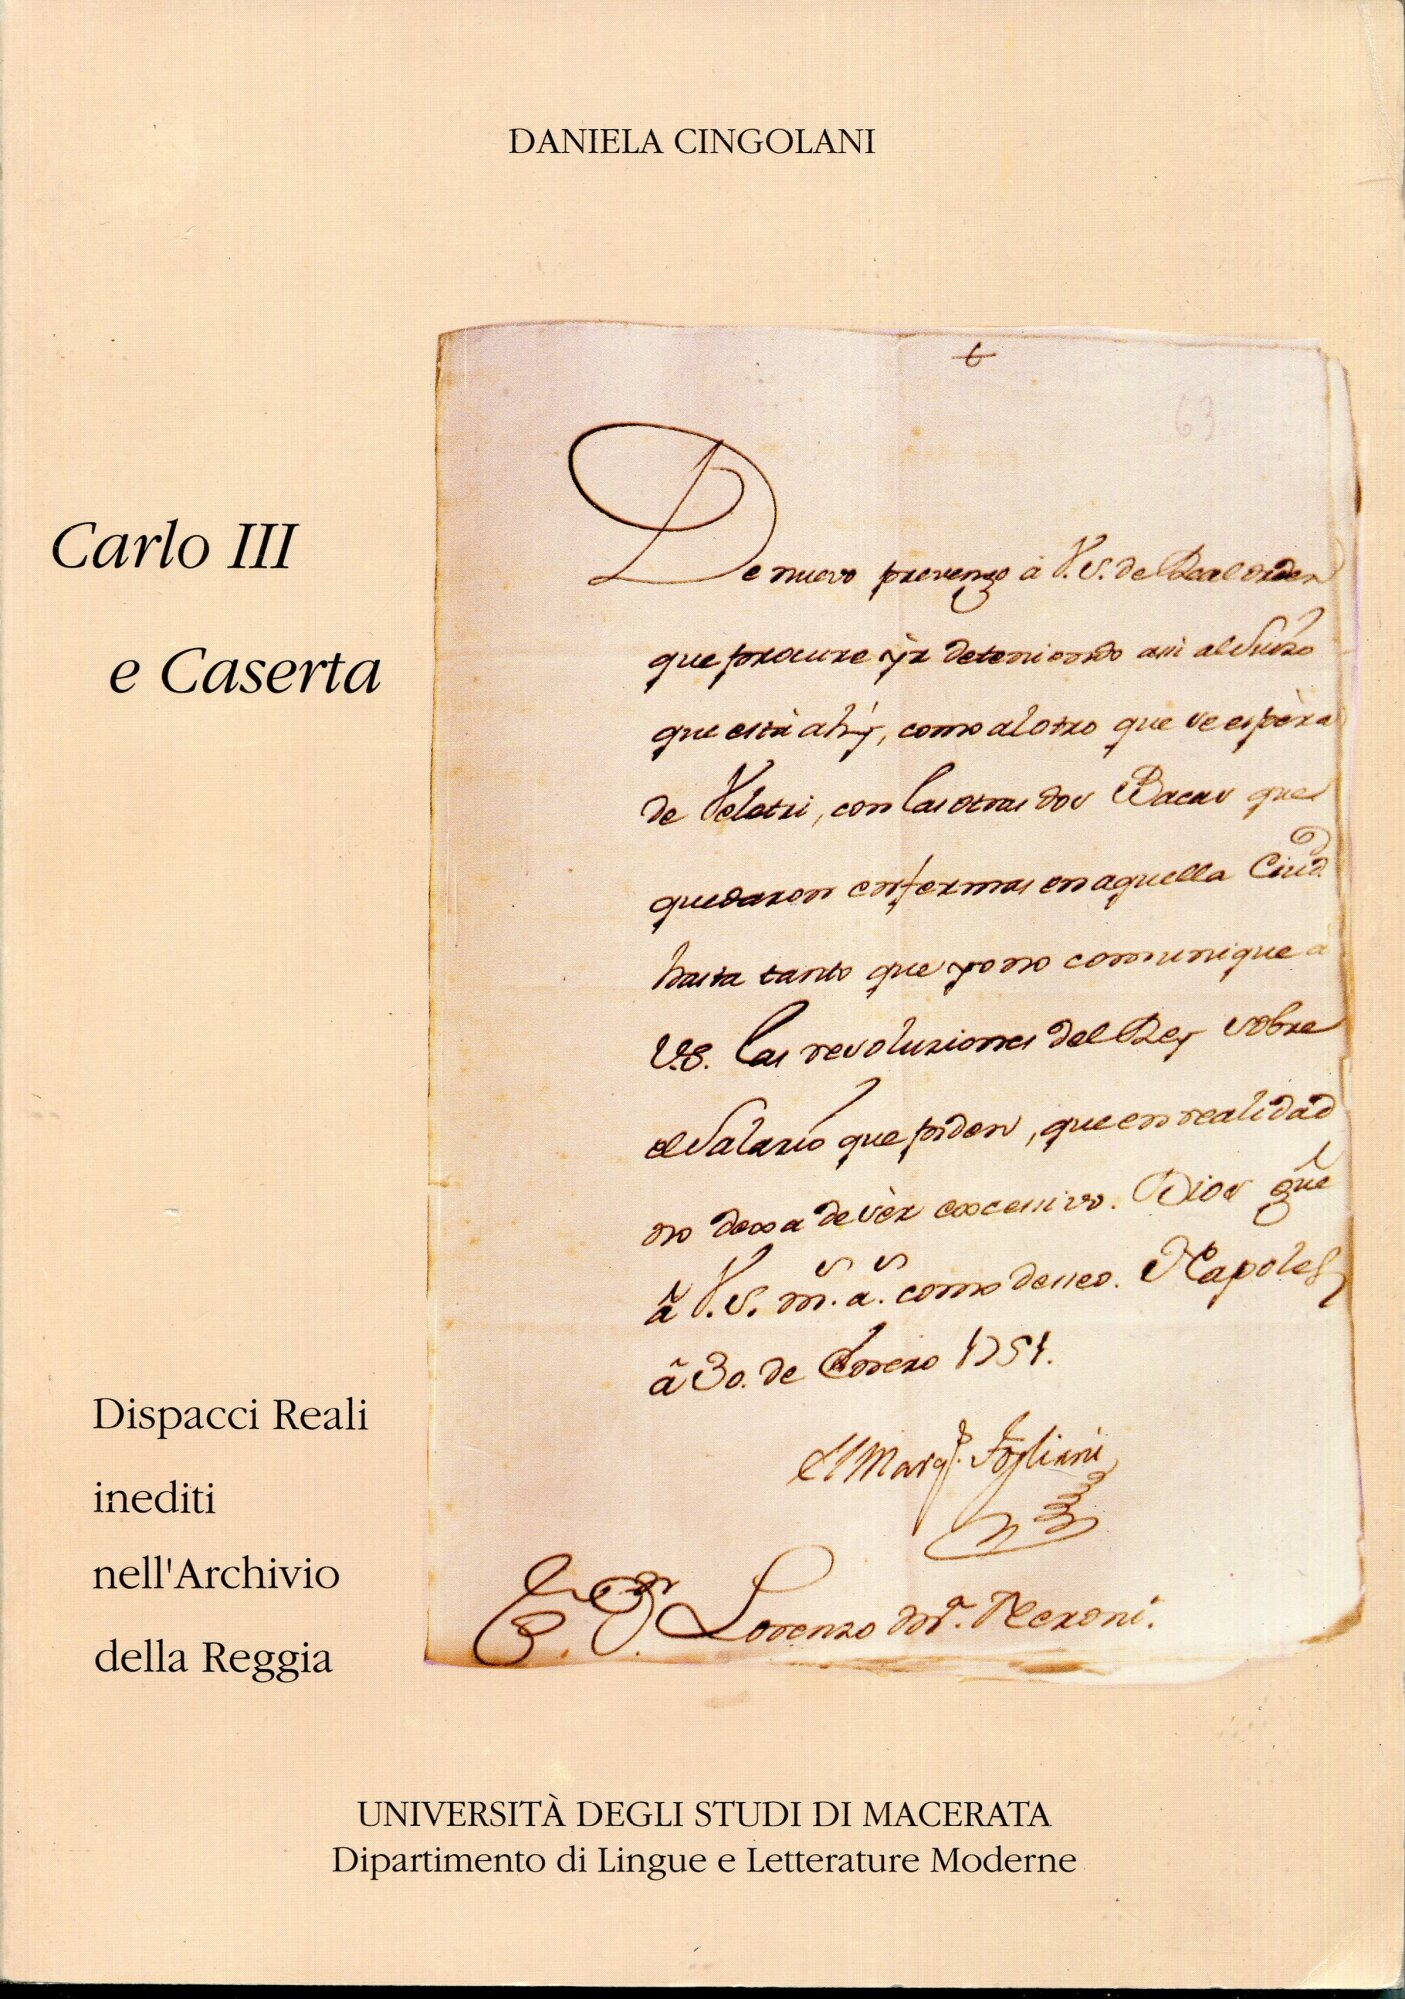 DANIELA CINGOLANI
Carlo III
e Caserta
63
De nuevo prevengo à V.S. de Real orden
que procure yr deteniendo assi al Suizo
que està ahy, como al otro que se espèra
de Veletri, con las otras dos Bacas que
quedaron enfermas en aquella Ciud.
hasta tanto que yo no comunique a
V.S. las resoluziones del Rey sobre
el Salario que piden, que en realidad
no dexa de sèr excessivo. Dios gue
à V.S. ms. as. como desseo. Napoles
à 30. de Enero 1751.
El Marqs. Fogliani
Lorenzo Ma. Neroni.
Dispacci Reali
inediti
nell'Archivio
della Reggia
UNIVERSITÀ DEGLI STUDI DI MACERATA
Dipartimento di Lingue e Letterature Moderne